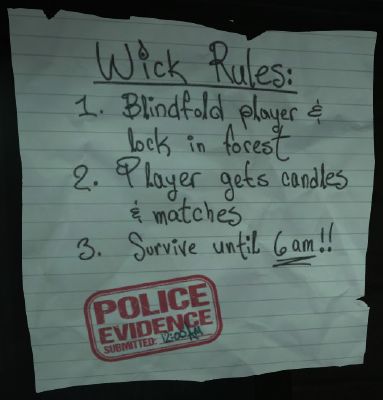 Wick Rules:
1. Blindfold player &
lock in forest
2. Player gets candles
& matches
3. Survive until 6am!!
POLICE
EVIDENCE
SUBMITTED: 12:00AM